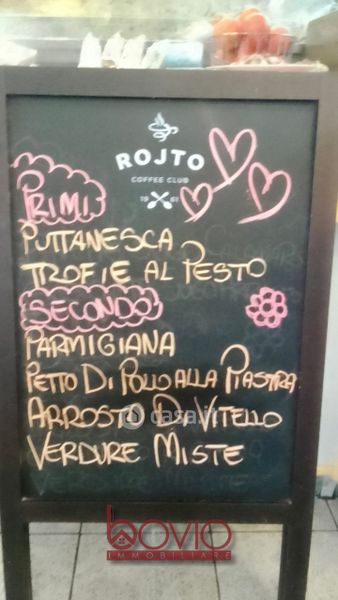 ROJTO
COFFEE CLUB
19 61
PRIMI
PUTTANESCA
TROFIE AL PESTO
SECONDO
PARMIGIANA
PETTO DI POLLO ALLA PIASTRA
ARROSTO DI VITELLO
VERDURE MISTE
casa.it
bovio
IMMOBILIARE